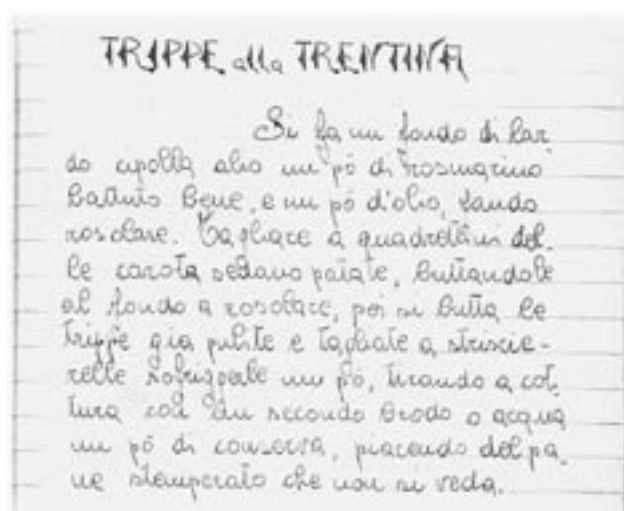 TRIPPE alla TRENTINA
Si fa un fondo di lar
do cipolla alio un pò di rosmarino
battuto bene, e un pò d'olio, fando
rosolare. Tagliare a quadrettini del.
le carota sedano patate, buttandole
al fondo a rosolare, poi si butta le
trippe gia pulite e tagliate a striscie-
relle sofrigerle un pò, tirando a cot.
tura col secondo brodo o acqua
un pò di conserva, piacendo del pa.
ne stemperato che non si veda.